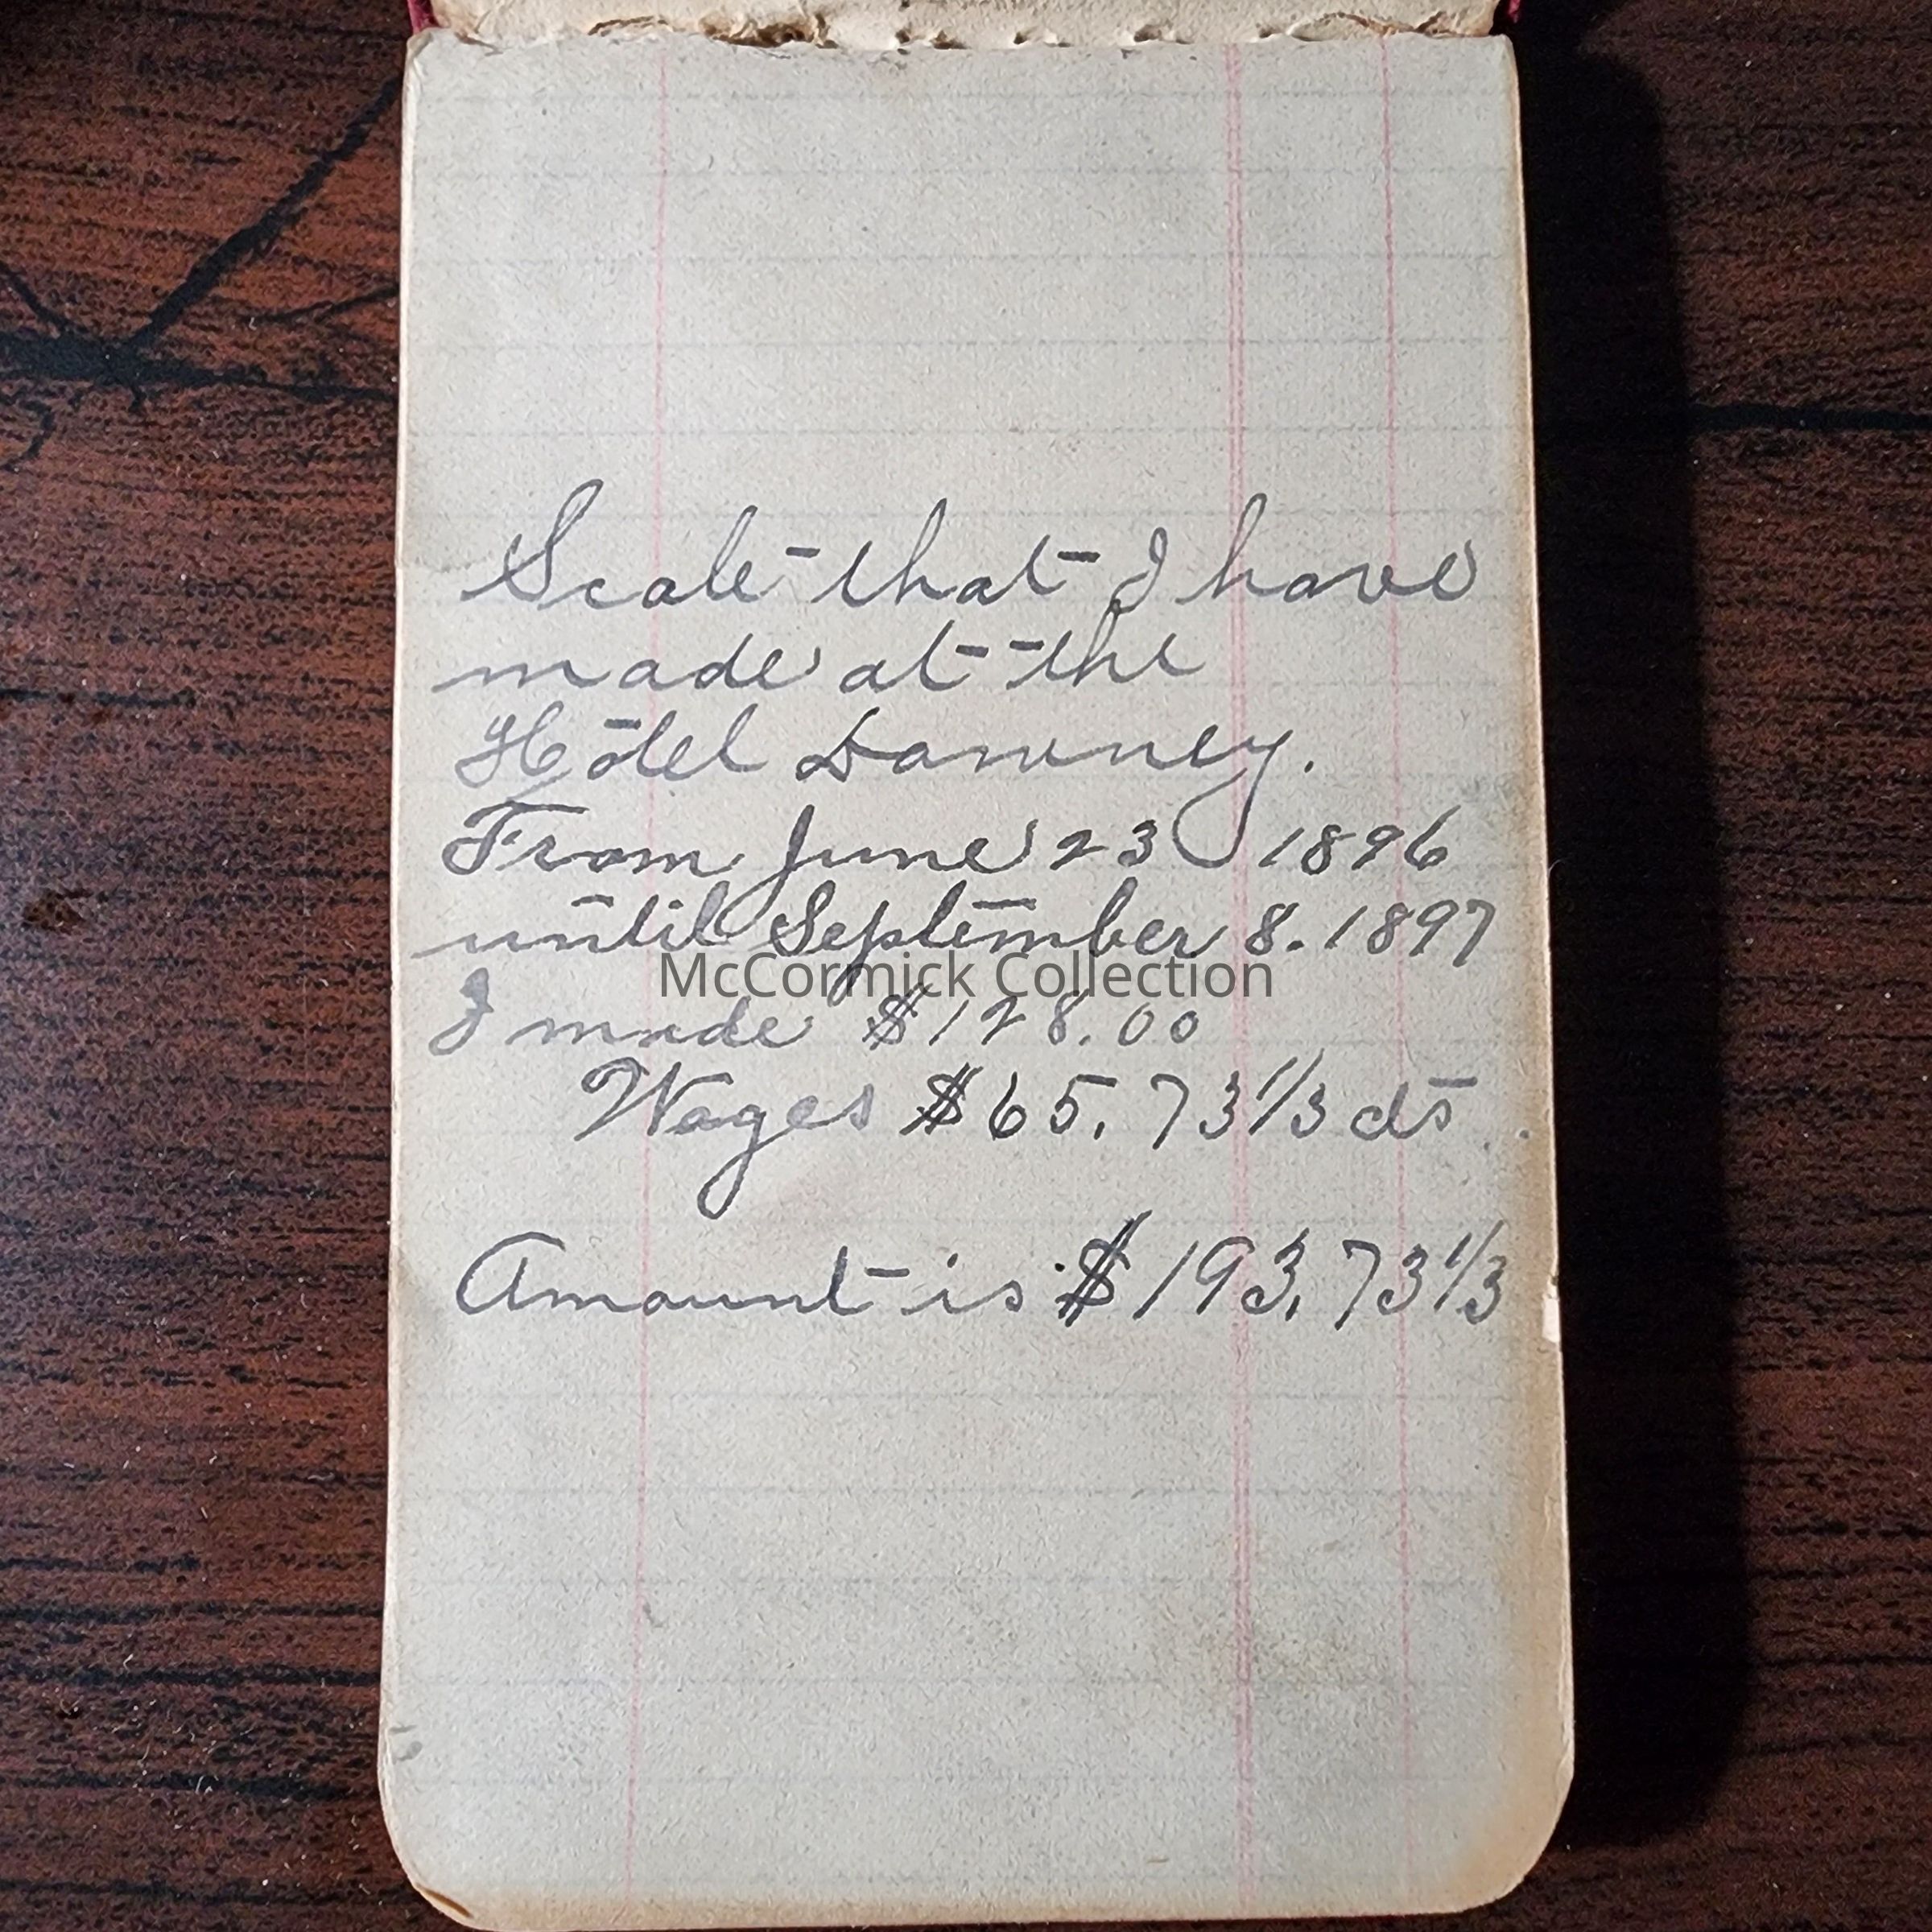 Scale that I have
made at the
Hotel Downey.
From June 23 1896
until September 8. 1897
McCormick Collection
I made $128.00
Wages $65.73 1/3 cts
Amount is $193.73 1/3